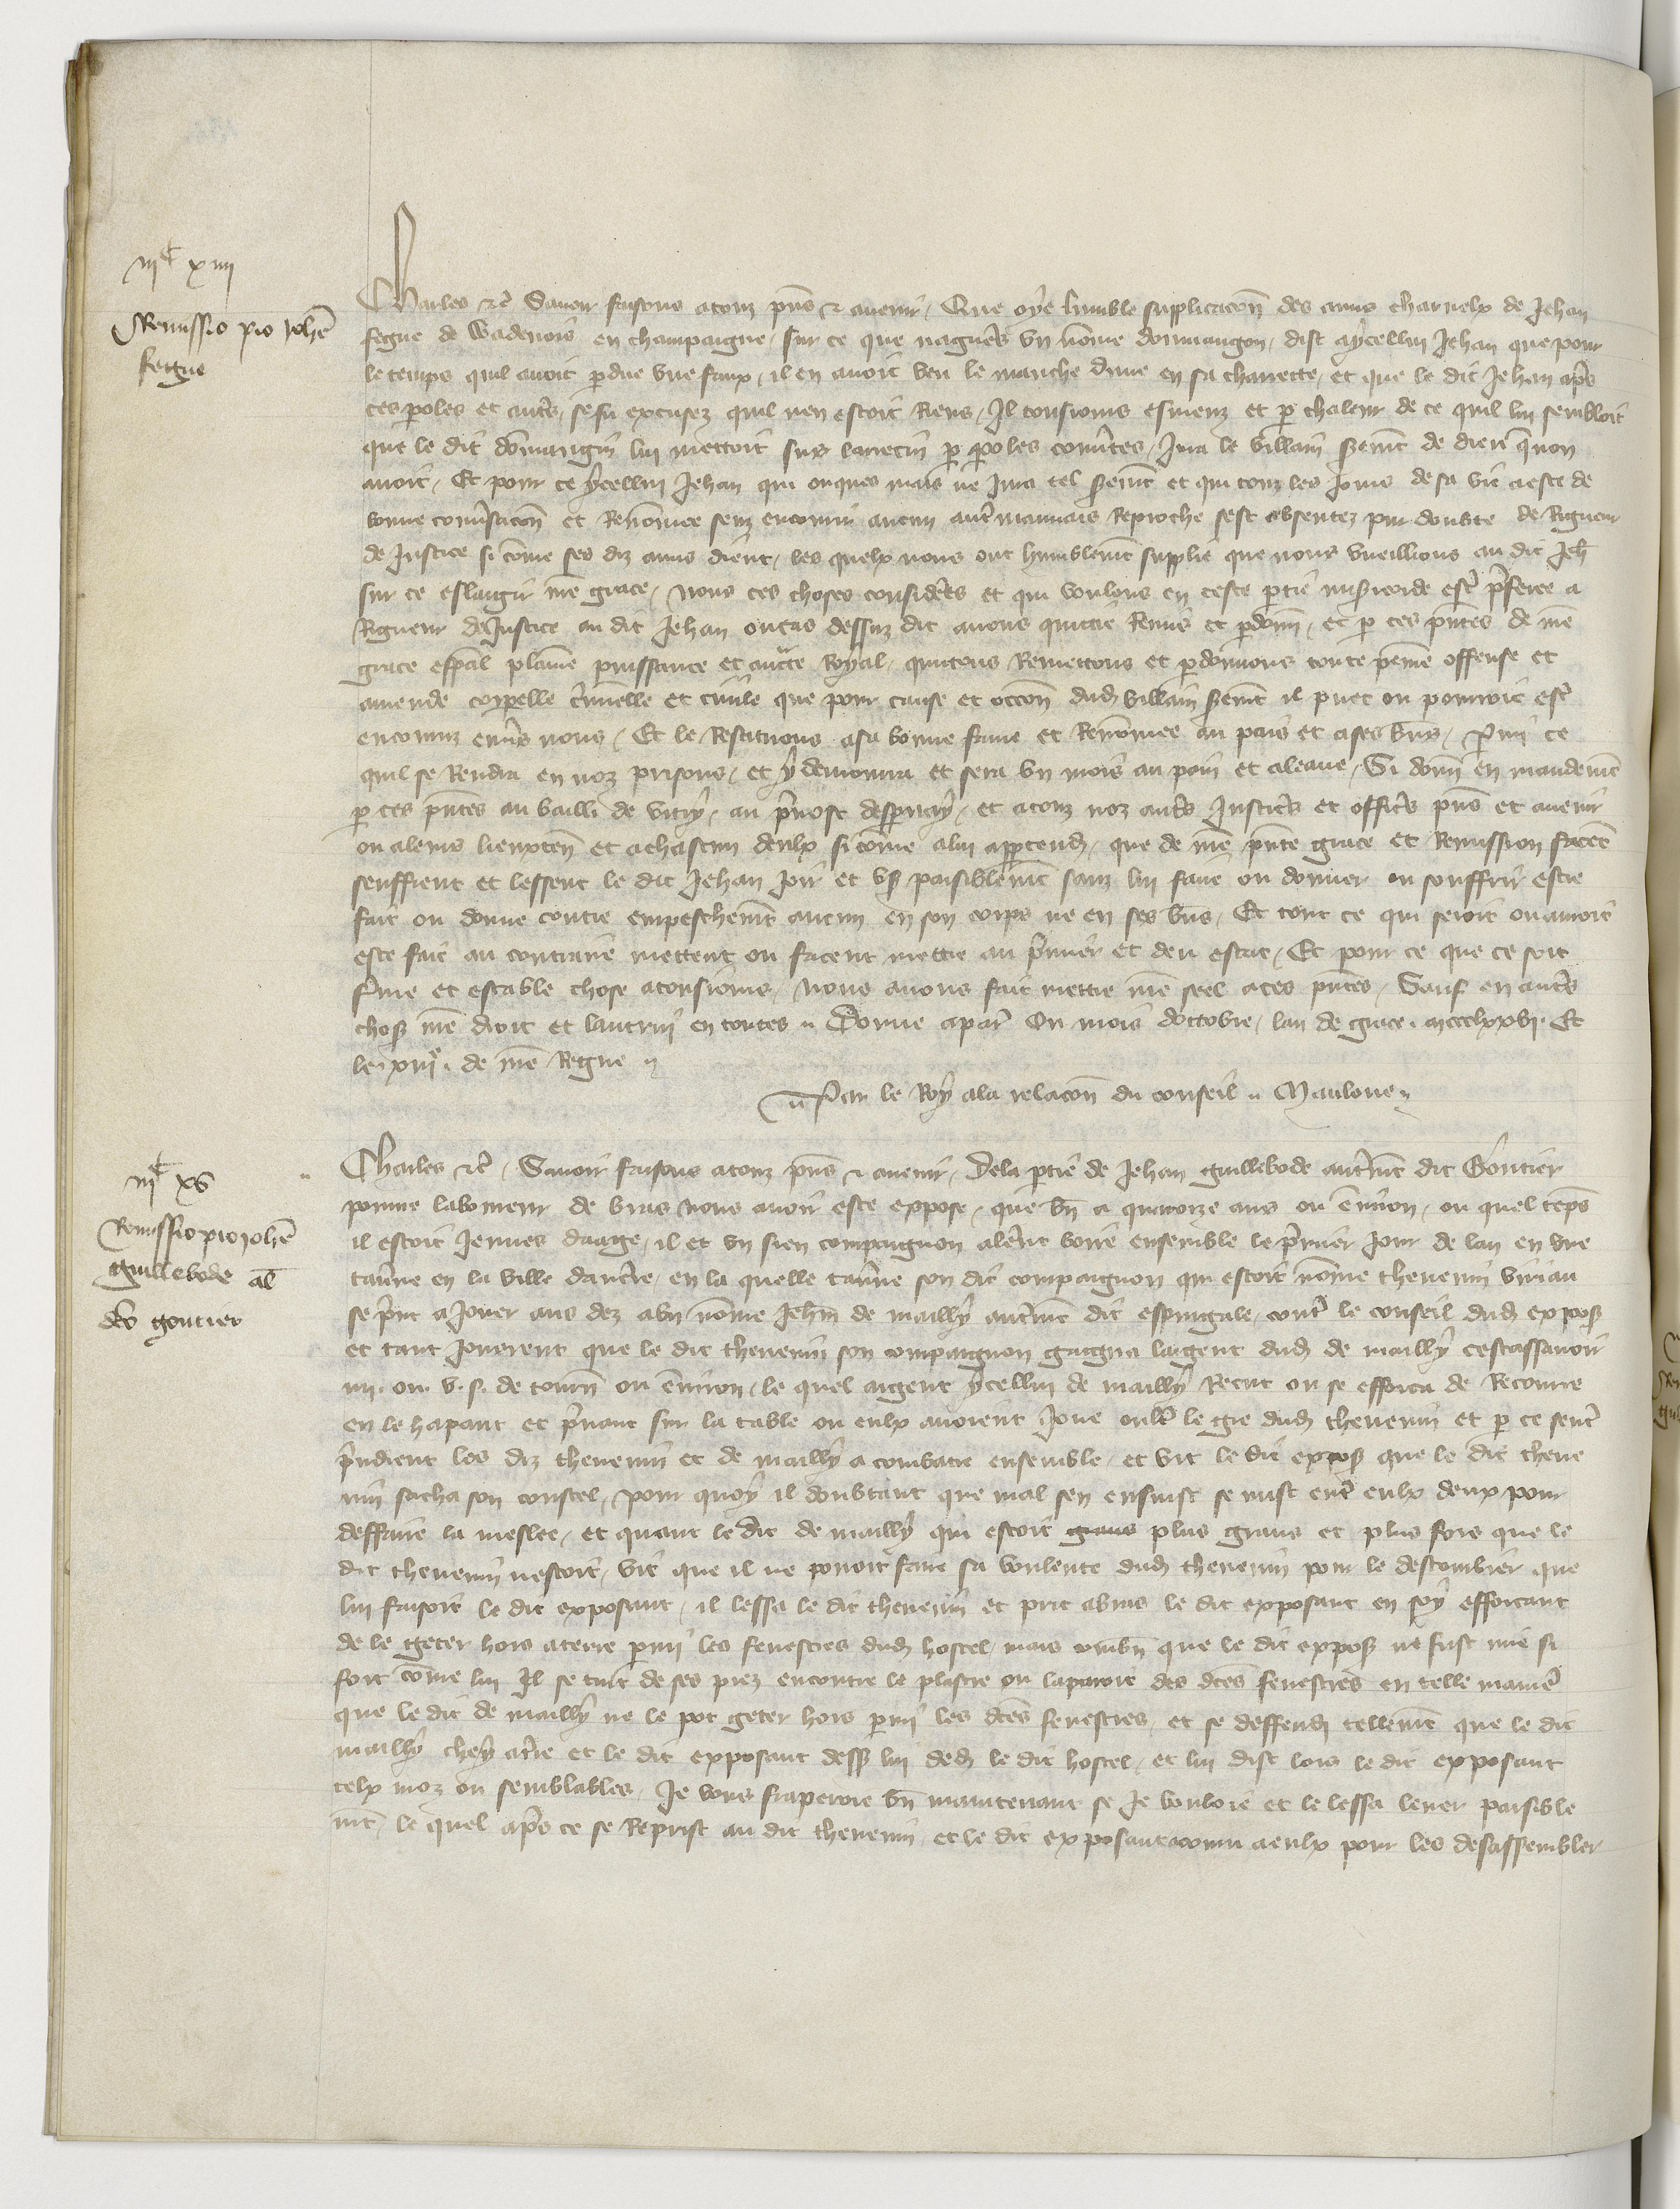 iijc xiiii
Remissio pro Johē
fegue
Charles etc̄ Sauoir faisons a touz pn̄s et auenir / Que oye lumble supplicacōn des amis charnelx de Jehan
fegue de Wadenois en champaigne / sur ce que nagueŕs vn nōme dommangon / dist a ycellui Jehan que pour
le temps quil auoit ꝑdue vne faux / il en auoit veu le manche dune en sa charrette / et que le dit Jehan apr̄s
ces ꝑoles et autr̄s / se fu excusez quil nen estoit Riens / Il tousiours esmeuz et ꝑ chaleur de ce quil lui sembloit
que le dit dōmangin lui mettoit sus larrecin ꝑ ꝑoles couūtes / Jura le villain sermēt de dieu quon
auoit / Et pour ce ycellui Jehan qui onques mais ne Jura tel sermēt et qui touz les Jours de sa vie a este de
bonne conūsacōn et Renōmee senz encourir aucun autr̄ mauuais Reproche sest absentez pour doubte de Rigueur
de Justice si cōme ses diz amis dient / les quelx nous ont humblemēt supplie que nous vueillions au dit Jeh̄
sur ce eslargir nr̄e grace / Nous ces choses consideŕes et qui voulons en ceste ꝑtie misīcorde estr̄ p̄feree a
Rigueur de Justice au dit Jehan ou cas dessuz dit auons quittie Remis et ꝑdōnn̄ / et ꝑ ces pn̄tes de nr̄e
grace esp̄al plaīne puissance et auctē Royal / quittons Remettons et ꝑdonnons toute peine offense et
amende corporelle cr̄iminelle et ciuile que pour cause et occōn dud̄ villain sermēt il puet ou pourroit estr̄
encouruz enūs nous / Et le Restituons a sa bonne fame et Renōmee au pais et a ses biēs / ꝑmi ce
quil se Rendra en noz prisons / et y demourra et sera vn mois au pain et a leaue / Si donn̄ en mandemēt
ꝑ ces pn̄tes au bailli de vitry / au p̄uost desꝑnay / et a touz noz autr̄s Justicr̄s et officr̄s pn̄s et auenir
ou a leurs lieuxten̄ et a chascun deulx si cōme a lui apꝑtend̄ / que de nr̄e pn̄te grace et Remission facēt
seuffrent et lessent le dit Jehan Joir et vs̄ paisiblemēt sanz lui faire ou donner ou souffrir estre
fait ou donne contre empeschemēt aucun en son corps ne en ses biēs / Et tout ce qui seroit ou auroit
este fait au contraire mettent ou facent mettre au p̄mier et deu estat / Et pour ce que ce soit
ferme et estable chose a tousiours / Nous auons fait mettre nr̄e seel a ces pn̄tes / Sauf en autr̄s
chos̄ nr̄e droit et lautrui en toutes // Donne a par̄ Ou mois doctobre / lan de grace . mccclxxvj . Et
le . xiije . de nr̄e Regne //
// Par le Roy a la relacōn du conseil // Mauloue //
iijc xv
Remissio pro Johē
Guillebode al̄
dc̄s goutier
Charles etc̄ / Sauoir faisons a touz pn̄s et auenir / De la ꝑtie de Jehan guillebode autr̄mēt dit Goutier
poure laboureur de bras Nous auoir este expose / que bn̄ a quatorze ans ou enuiron / ou quel tēps
il estoit Jeunes daage / il et vn sien compaignon aleŕent boire ensemble le p̄mier Jour de lan en vne
tauerne en la ville dancre / en la quelle tauerne son dit compaignon qui estoit nōme theuenin viriau
se p̄nt a Jouer aus dez a vn nōme Jehn̄ de mailly autr̄mēt dit espringale / contr̄ le conseil dud̄ expos̄
et tant Jouerent que le dit theuenin son compaignon gaigna largent dud̄ de mailly cestassauoir
iiii . ou . v . s . de tourn̄ ou enuiron / le quel argent ycellui de mailly Recut ou se efforca de Recourre
en le hapant et p̄nant sur la table ou eulx auoient Joue oultr̄ le gre dud̄ theuenin et ꝑ ce sentr̄
p̄ndrent les diz theuenin et de mailly a combatre ensemble / et vit le dit expos̄ que le dit theue
nin sacha son coustel / pour quoy il doubtant que mal sen ensuist se mist entr̄ eulx deux pour
deffaire la meslee / et quant le dit de mailly qui estoit grans plus grans et plus fors que le
dit theuenin nestoit / vit que il ne pouoit faire sa voulente dud̄ theuenin pour le destourbier que
lui faisoit le dit exposant / il lessa le dit theuenin et prit a bras le dit exposant en soy efforcant
de le geter hors a terre ꝑmi les fenestres dud̄ hostel / mais combn̄ que le dit expos̄ ne fust mie si
fort cōme lui Il se tint de ses piez encontre le plastre ou la paroit des dc̄es fenestres en telle manier̄
que le dit de mailly ne le pot geter hors ꝑmi les dc̄es fenestres / et se deffend̄ tellemēt que le dit
mailly chey a tr̄re et le dit exposant dess̄ lui ded̄ le dit hostel / et lui dist lors le dit exposant
telx moz ou semblables / Je vous fraperoie bn̄ maintenant se Je vouloie et le lessa leuer paisible
mēt / le quel apr̄s ce se Reprist au dit theuenin / et le dit exposant acouru a eulx pour les desassembler